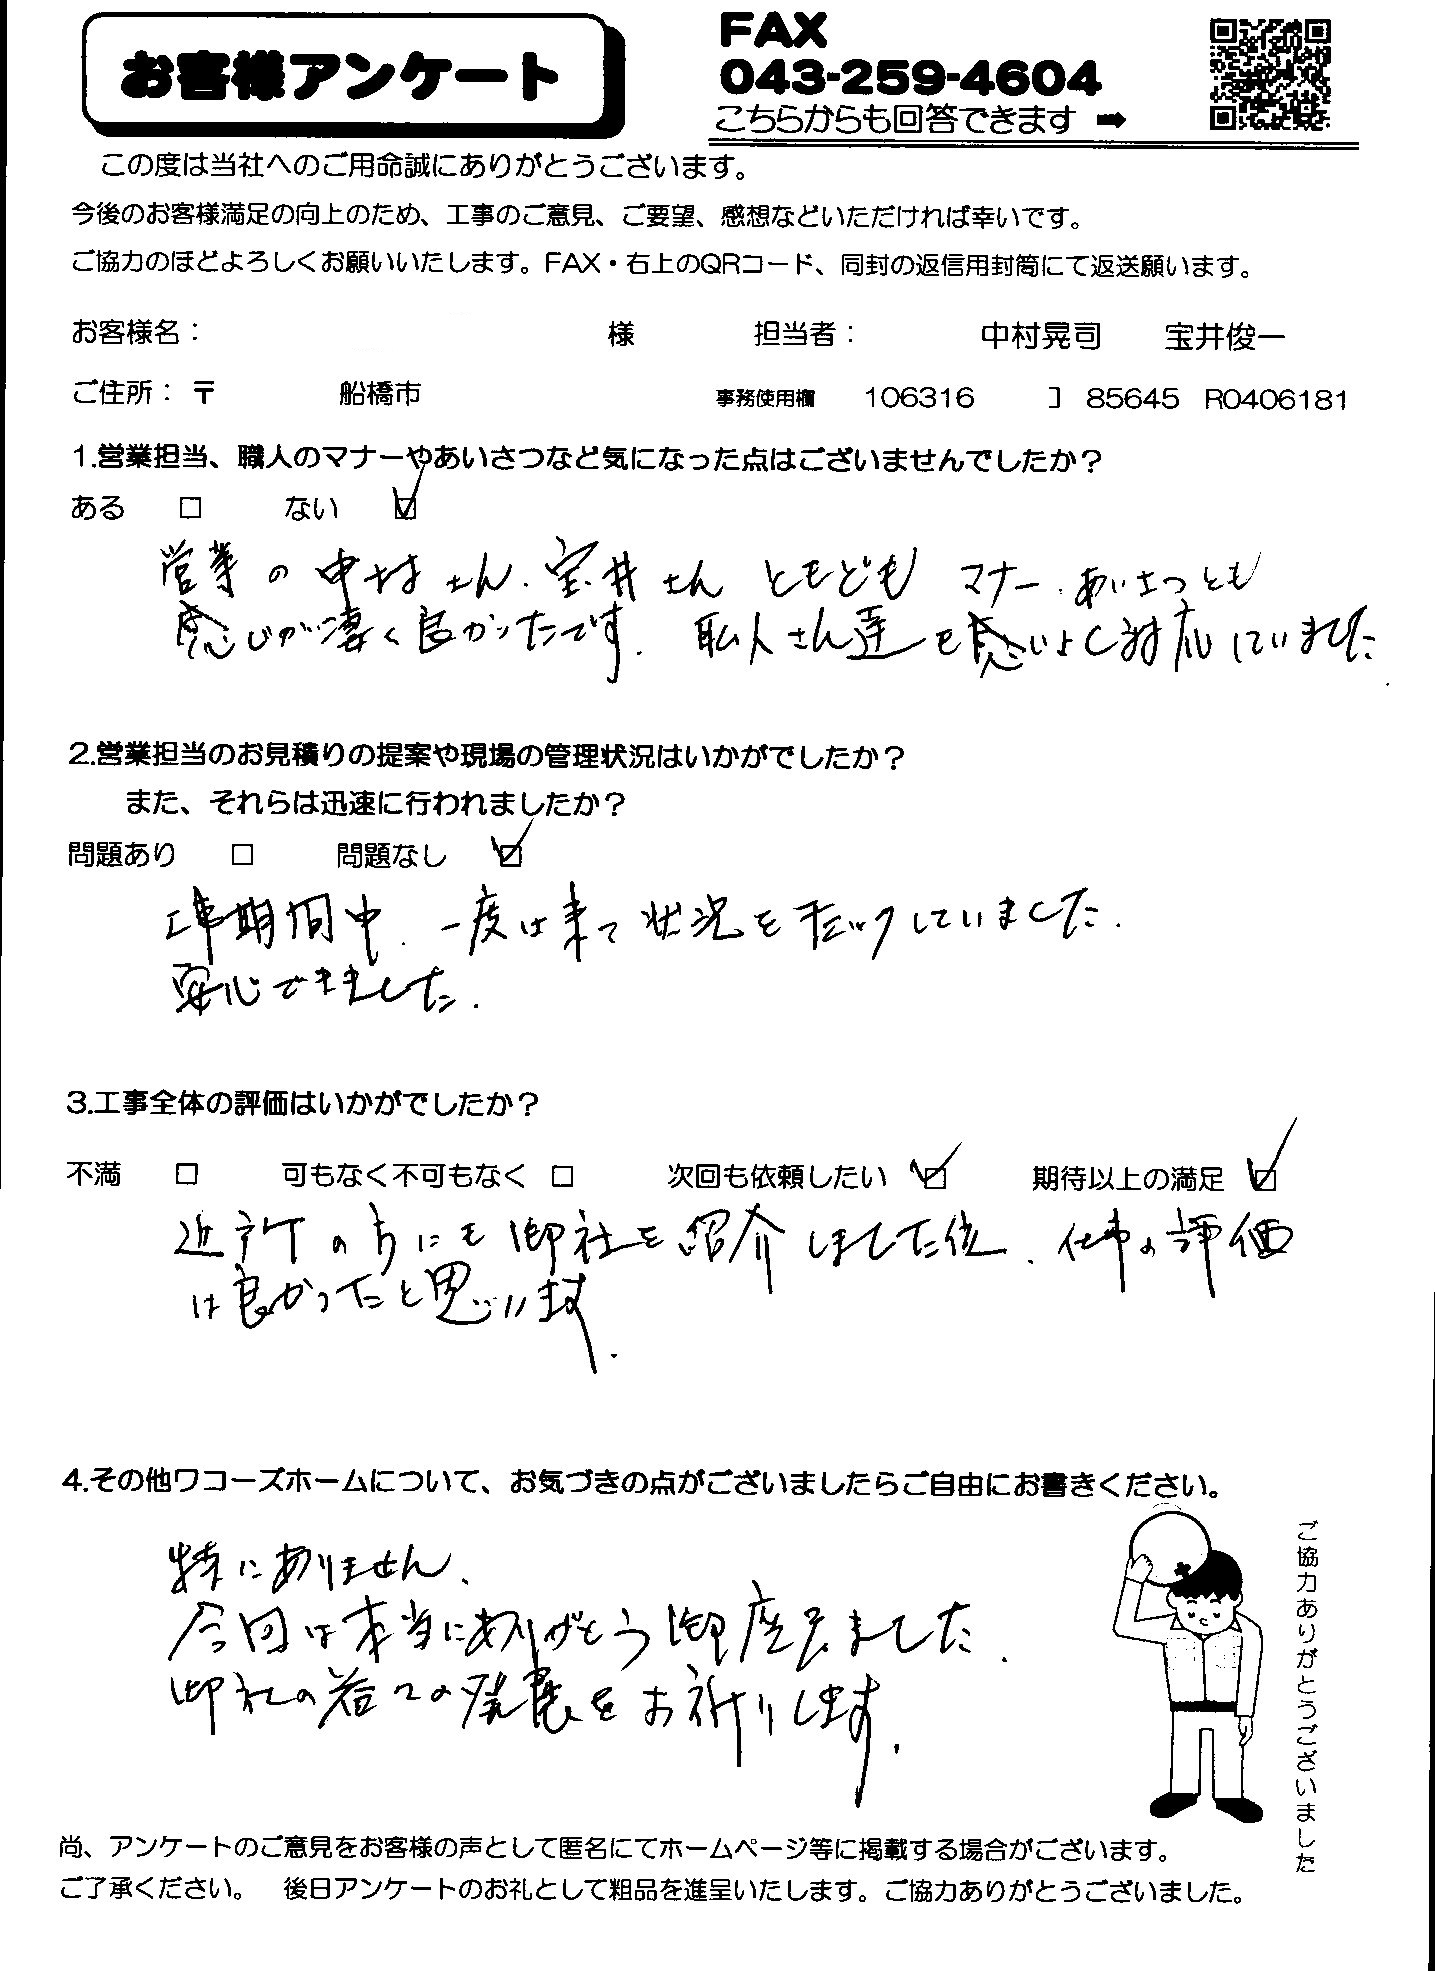 お客様アンケート
FAX
043-259-4604
こちらからも回答できます ➡
この度は当社へのご用命誠にありがとうございます。
今後のお客様満足の向上のため、工事のご意見、ご要望、感想などいただければ幸いです。
ご協力のほどよろしくお願いいたします。FAX・右上のQRコード、同封の返信用封筒にて返送願います。
お客様名： 様 担当者： 中村晃司 宝井俊一
ご住所：〒 船橋市 事務使用欄 106316 85645 R0406181
1.営業担当、職人のマナーやあいさつなど気になった点はございませんでしたか？
ある □ ない ☑
営業の中村さん、宝井さん ともども マナー、あいさつとも
感じが凄く良かったです。 職人さん達も感じよく対応していました
2.営業担当のお見積りの提案や現場の管理状況はいかがでしたか？
また、それらは迅速に行われましたか？
問題あり □ 問題なし ☑
工事期間中、一度は来て状況をチェックしていました。
安心できました。
3.工事全体の評価はいかがでしたか？
不満 □ 可もなく不可もなく □ 次回も依頼したい ☑ 期待以上の満足 ☑
近所の方にも御社を紹介しました位、仕事の評価
は良かったと思います。
4.その他ワコーズホームについて、お気づきの点がございましたらご自由にお書きください。
特にありません。
今回は本当にありがとう御座いました。
御社の益々の発展をお祈りします。
ご協力ありがとうございました
尚、アンケートのご意見をお客様の声として匿名にてホームページ等に掲載する場合がございます。
ご了承ください。 後日アンケートのお礼として粗品を進呈いたします。ご協力ありがとうございました。